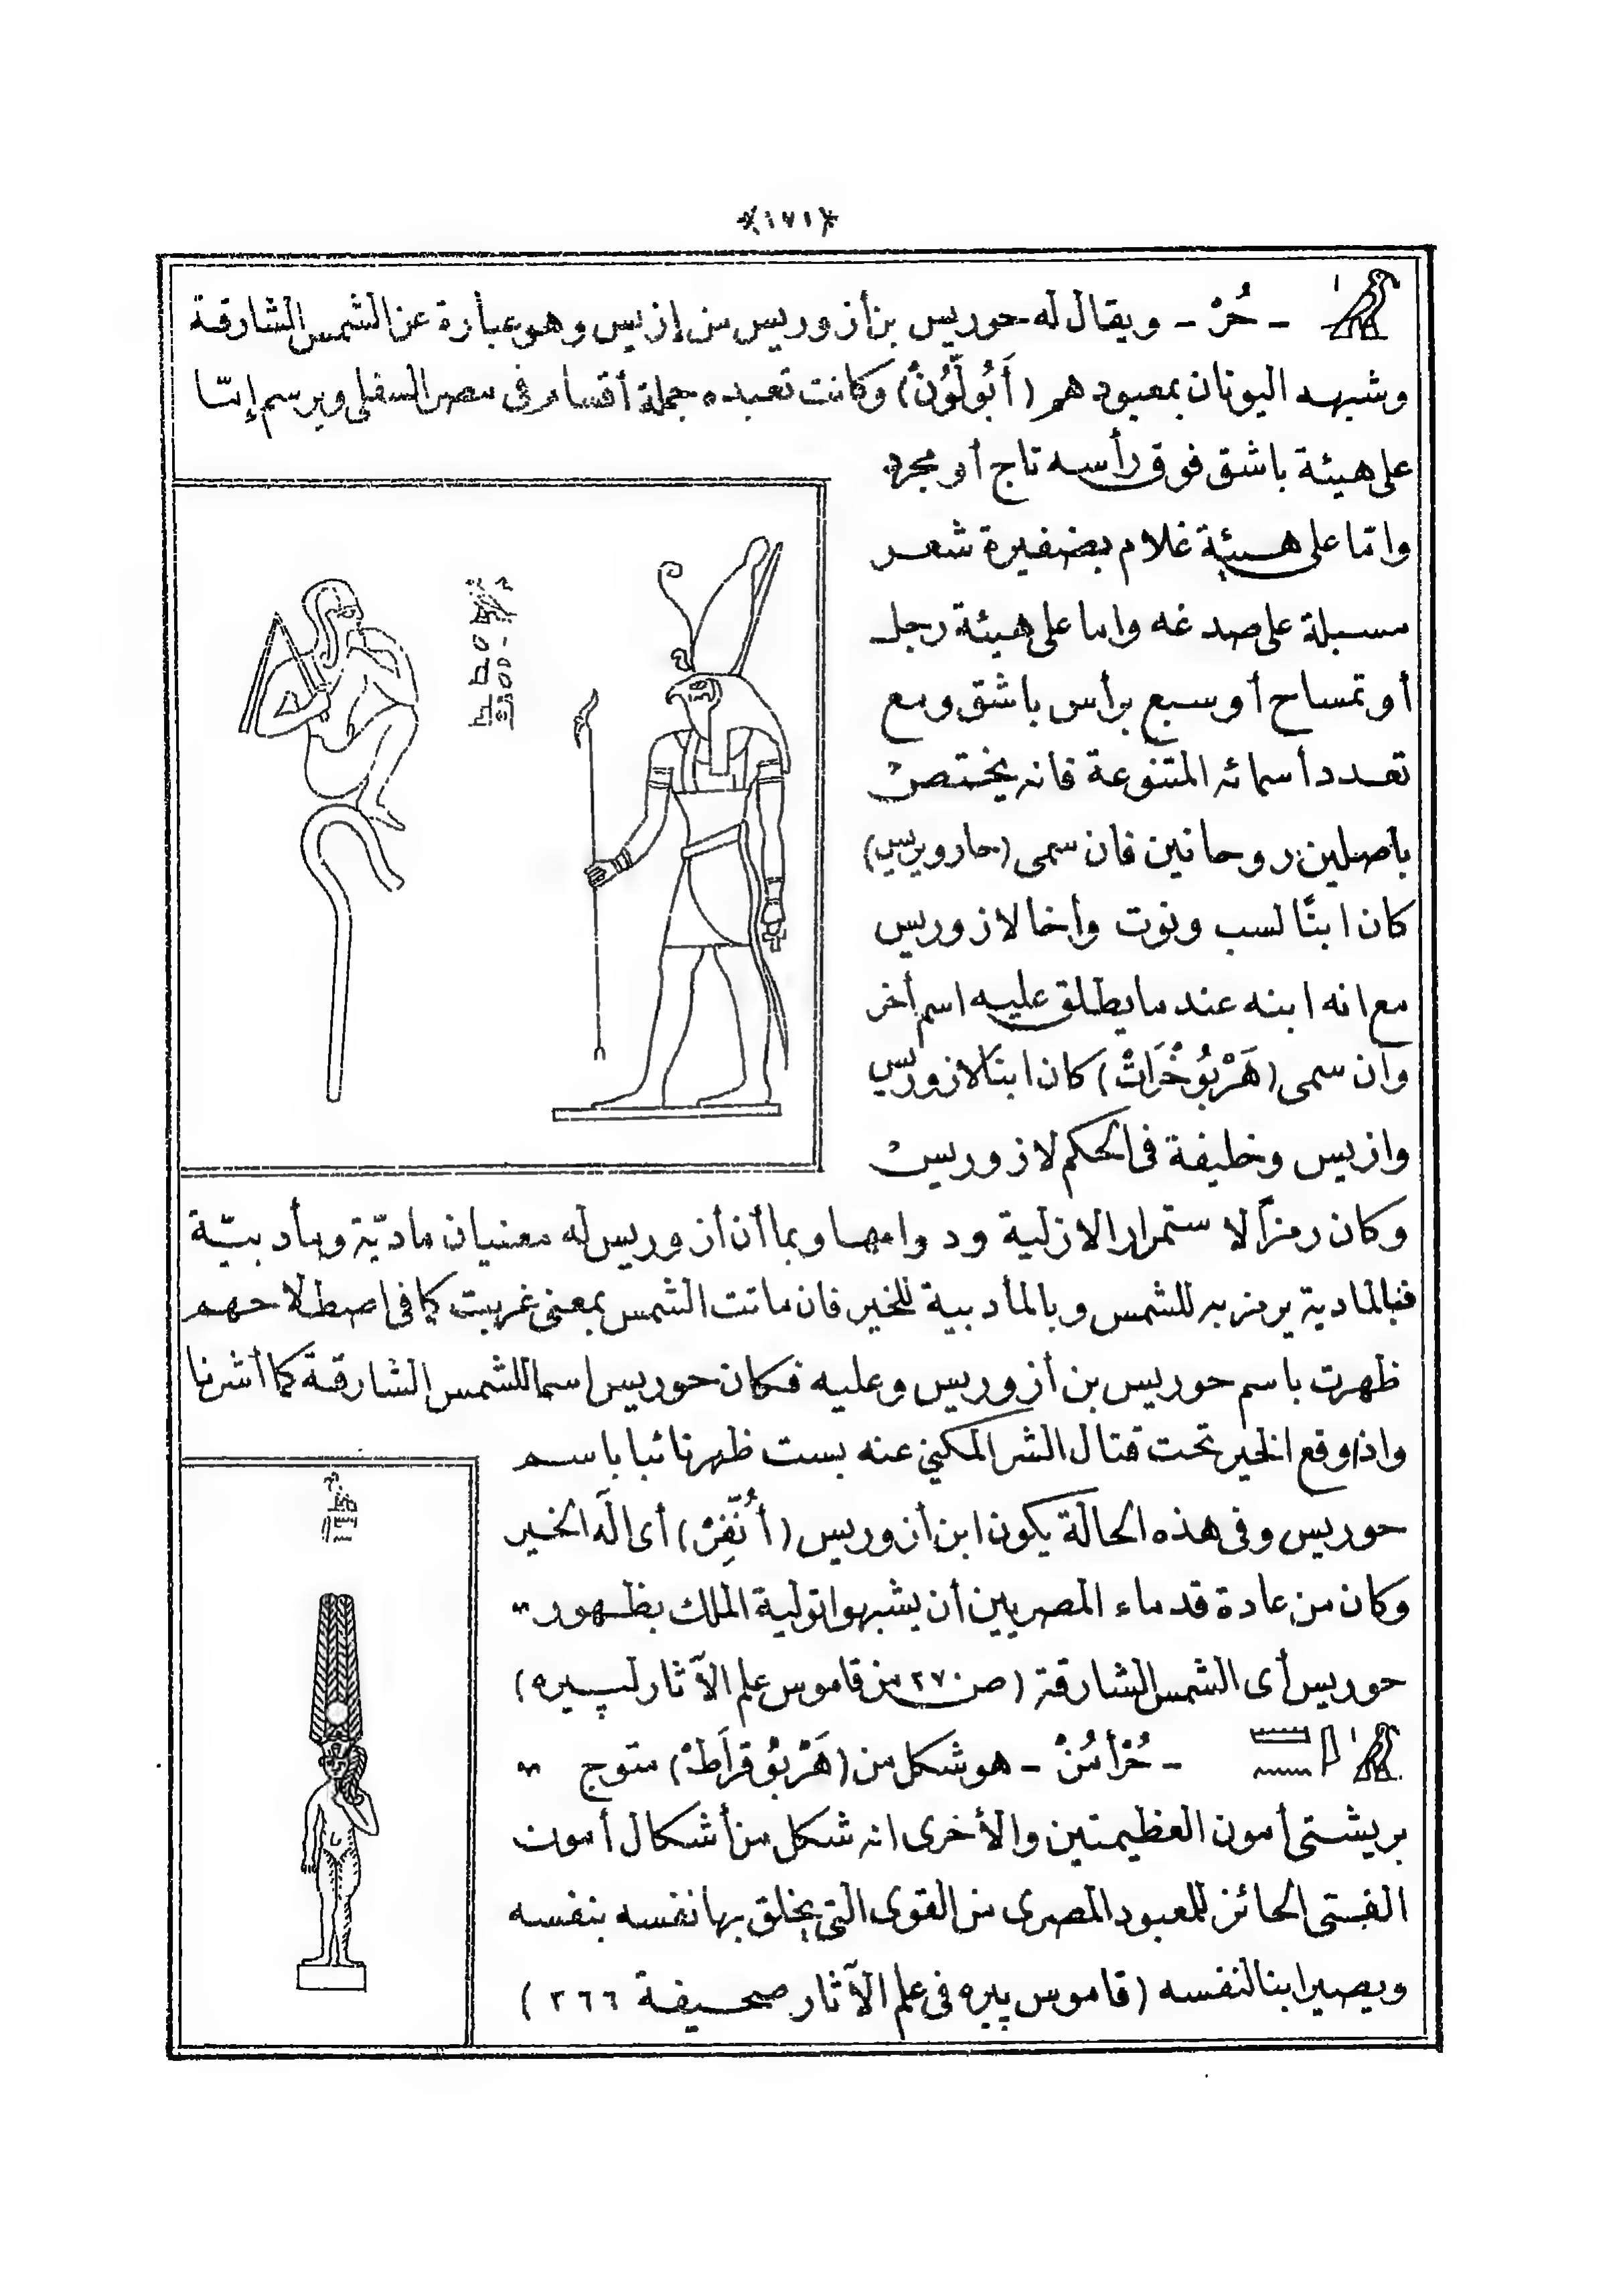 ﴿١٧١﴾
- حُرْ - ويقال له حوريس بن أزوريس من إزيس وهو عبارة عن الشمس الشارقة
وشبهه اليونان بمعبودهم (أَبُولُّونْ) وكانت تعبده جملة أقسام فى مصر السفلى ويرسم إمّا
على هيئة باشق فوق رأسه تاج أو مجرد
وامّا على هيئة غلام بضفيرة شعر
مسبلة على صدغه واما على هيئة رجل
أو تمساح أو سبع برأس باشق ومع
تعدد أسمائه المتنوعة فانه يختص
باصلين روحانين فان سمى (حارويريس)
كان ابنًا لسب ونوت وأخا لازوريس
مع انه ابنه عند ما يطلق عليه اسم أخر
وان سمى (هَرْبُوخْرَاتْ) كان ابنا لازوريس
وازيس وخليفة فى الحكم لازوريس
وكان رمزاً لاستمرار الازلية ودوامها وبما أن أزوريس له معنيان ماديّة ومأدبيّة
فبالمادية يرمز به للشمس وبالمأدبية للخير فان ماتت الشمس بمعنى غربت كما فى اصطلاحهم
ظهرت باسم حوريس بن أزوريس وعليه فكان حوريس اسما للشمس الشارقة كما أشرنا
واذا وقع الخير تحت قتال الشر المكنى عنه بست ظهر نائبا باسم
حوريس وفى هذه الحالة يكون ابن أزوريس (أُنَّفِرْ) أى الَه الخير
وكان من عادة قدماء المصريين أن يشبهوا تولية الملك بظهور
حوريس أى الشمس الشارقة (ص ٢٧٠ من قاموس علم الآثار لپيره)
- حُرْأمُنْ - هو شكل من (هَرْبُوقرَاَطْ) متوج
بريشتى أمون العظيمتين والأخرى انه شكل من أشكال أمون
الفتى الحائز للمعبود المصرى من القوى التى يخلق بها نفسه بنفسه
ويصير ابنا لنفسه (قاموس پيره فى علم الآثار صحيفة ٢٦٦)